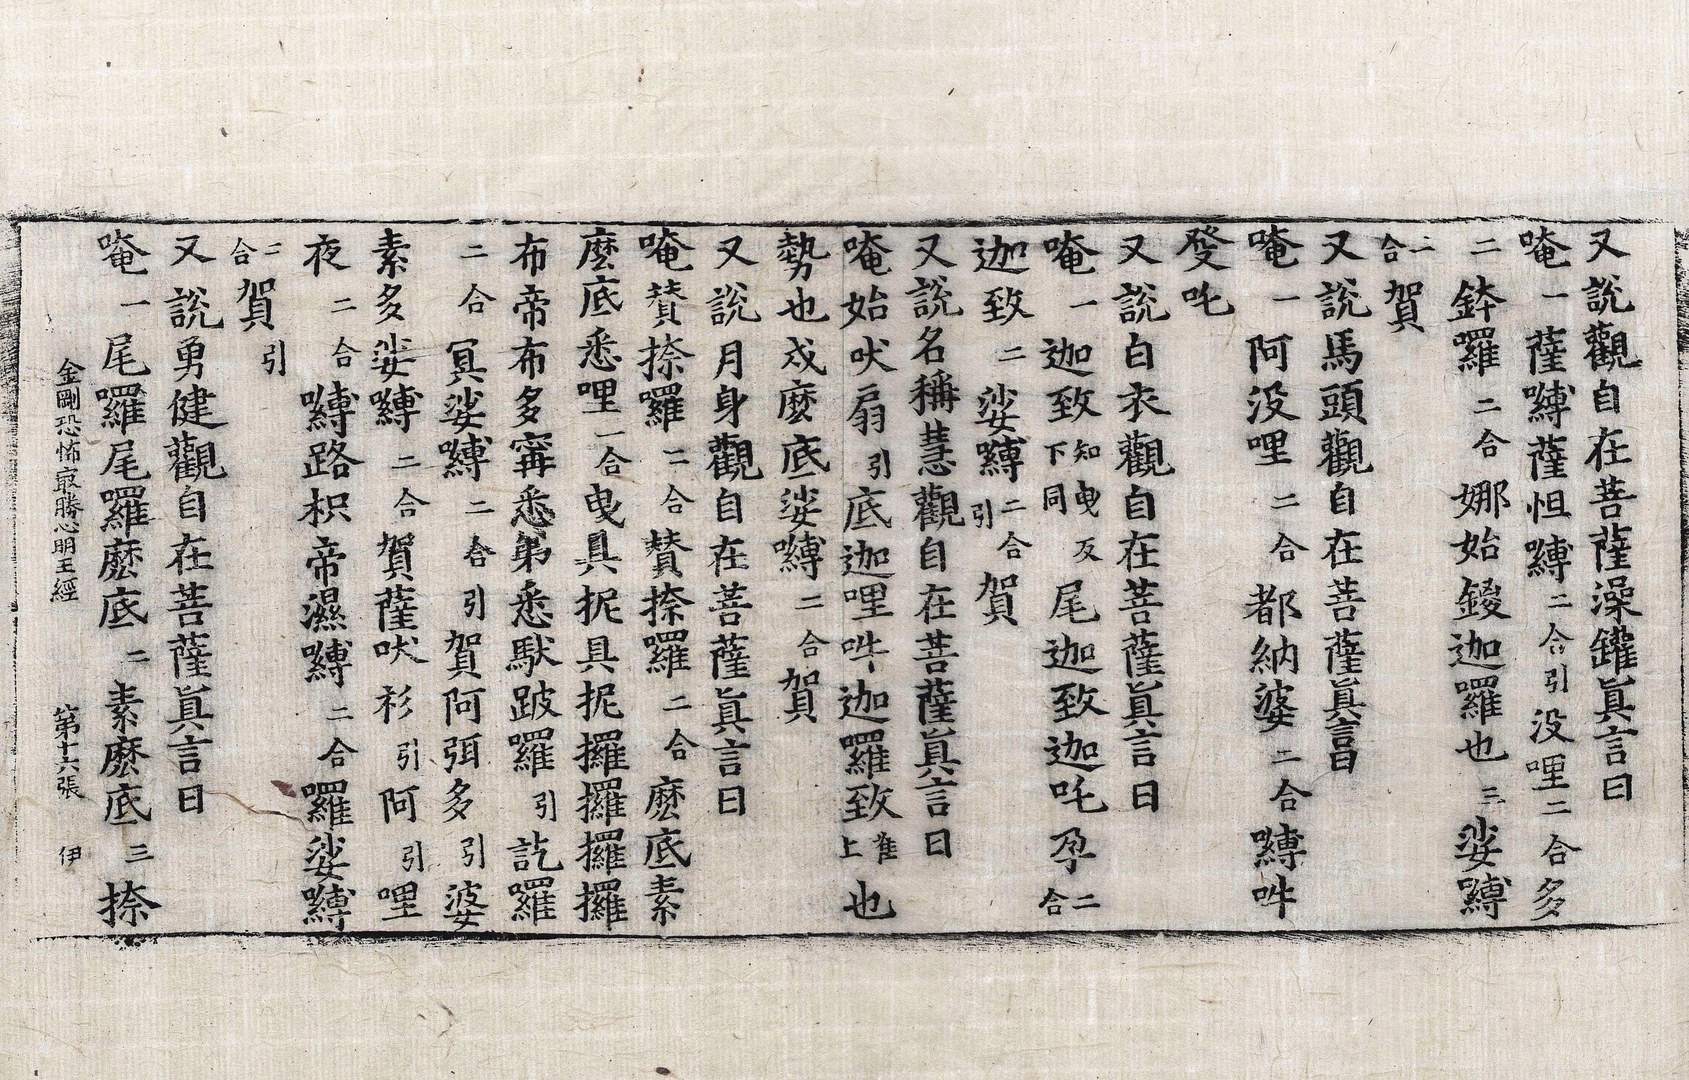 又說觀自在菩薩澡鑵眞言曰
唵一薩嚩薩怛嚩二合引没哩二合多
二鉢囉二合娜始鑁迦囉也三娑嚩
二合賀
又說馬頭觀自在菩薩眞言曰
唵一阿没哩二合都納婆二合嚩吽
發吒
又說白衣觀自在菩薩眞言曰
唵一迦致知曳反下同尾迦致迦吒孕二合
迦致二娑嚩二合引賀
又說名稱慧觀自在菩薩眞言曰
唵始吠扇引底迦哩吽迦囉致准上也
勢也戍麼底娑嚩二合賀
又說月身觀自在菩薩眞言曰
唵贊捺囉二合贊捺囉二合麼底素
麼底悉哩二合曳具抳具抳攞攞攞攞
布帝布多寗悉弟悉馱跛囉引訖囉
二合冥娑嚩二合引賀阿弭多引婆
素多娑嚩二合賀薩吠衫引阿引哩
夜二合嚩路枳帝濕嚩二合囉娑嚩
二合賀引
又說勇健觀自在菩薩眞言曰
唵一尾囉尾囉麼底二素麼底三捺
金剛恐怖㝡勝心明王經 第十六張 伊